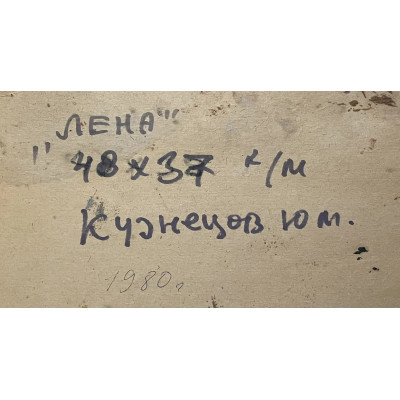 "ЛЕНА"
48 x 37 к/м
Кузнецов Ю м.
1980 г